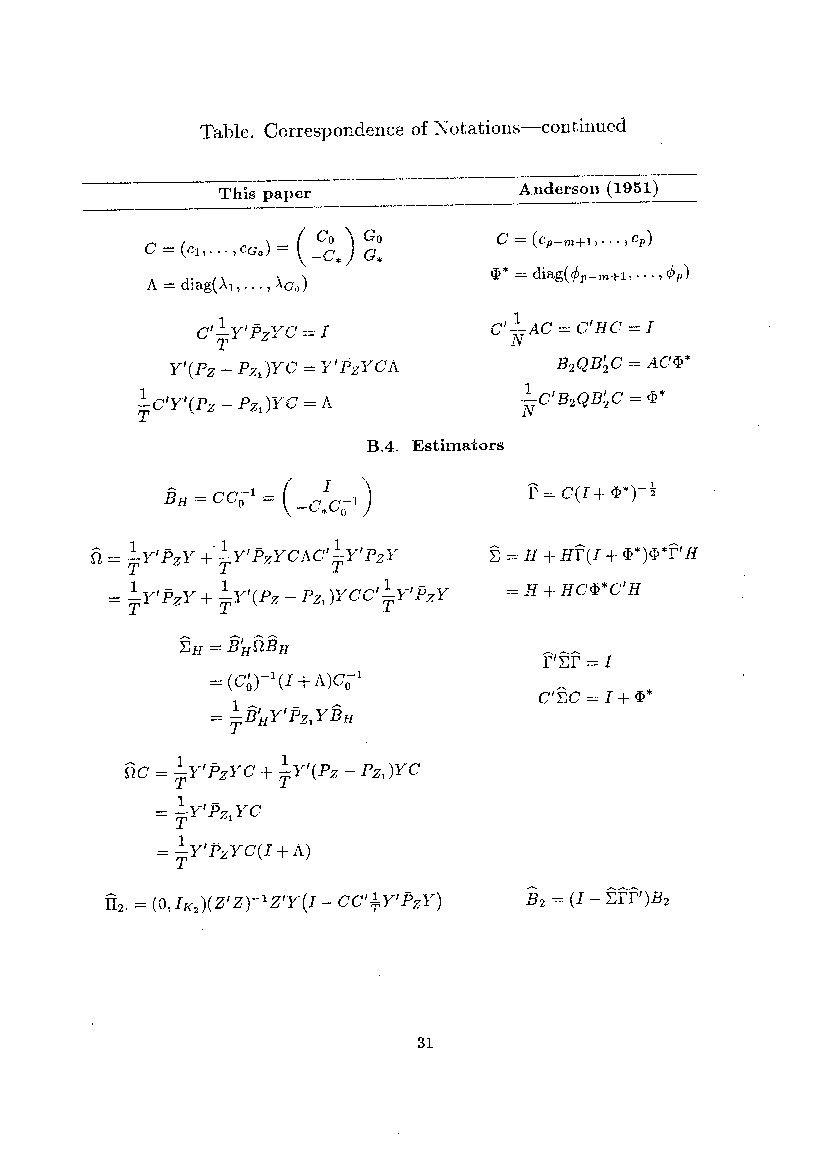 Table. Correspondence of Notations—continued
This paper Anderson (1951)
C = (c₁, . . . , c_{G₀}) = ( C₀ ; −C_* ) G₀ ; G_* C = (c_{p−m+1}, . . . , c_p)
Λ = diag(λ₁, . . . , λ_{G₀}) Φ* = diag(ϕ_{p−m+1}, . . . , ϕ_p)
C′ \frac{1}{T} Y′P̄_Z YC = I C′ \frac{1}{N} AC = C′HC = I
Y′(P_Z − P_{Z₁})YC = Y′P̄_Z YCΛ B₂QB₂′C = ACΦ*
\frac{1}{T} C′Y′(P_Z − P_{Z₁})YC = Λ \frac{1}{N} C′B₂QB₂′C = Φ*
B.4. Estimators
B̂_H = CC₀^{−1} = ( I ; −C_*C₀^{−1} ) Γ̂ = C(I + Φ*)^{−\frac{1}{2}}
Ω̂ = \frac{1}{T} Y′P̄_Z Y + \frac{1}{T} Y′P̄_Z YCΛC′ \frac{1}{T} Y′P̄_Z Y Σ̂ = H + HΓ̂(I + Φ*)Φ*Γ̂′H
= \frac{1}{T} Y′P̄_Z Y + \frac{1}{T} Y′(P_Z − P_{Z₁})YCC′ \frac{1}{T} Y′P̄_Z Y = H + HCΦ*C′H
Σ̂_H = B̂′_H Ω̂ B̂_H
Γ̂′Σ̂Γ̂ = I
= (C₀′)^{−1}(I + Λ)C₀^{−1}
C′Σ̂C = I + Φ*
= \frac{1}{T} B̂′_H Y′P̄_{Z₁} Y B̂_H
Ω̂C = \frac{1}{T} Y′P̄_Z YC + \frac{1}{T} Y′(P_Z − P_{Z₁})YC
= \frac{1}{T} Y′P̄_{Z₁} YC
= \frac{1}{T} Y′P̄_Z YC(I + Λ)
Π̂₂. = (0, I_{K₂})(Z′Z)^{−1}Z′Y(I − CC′ \frac{1}{T} Y′P̄_Z Y) B̂₂ = (I − Σ̂Γ̂Γ̂′)B₂
31